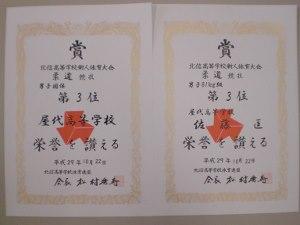 賞
北信高等学校新人体育大会
柔道競技
男子団体
第3位
屋代高等学校
栄誉を讃える
平成29年10月22日
北信高等学校体育連盟
会長
賞
北信高等学校新人体育大会
柔道競技
男子81kg級
第3位
屋代高等学校
佐藤 匡
栄誉を讃える
平成29年10月22日
北信高等学校体育連盟
会長